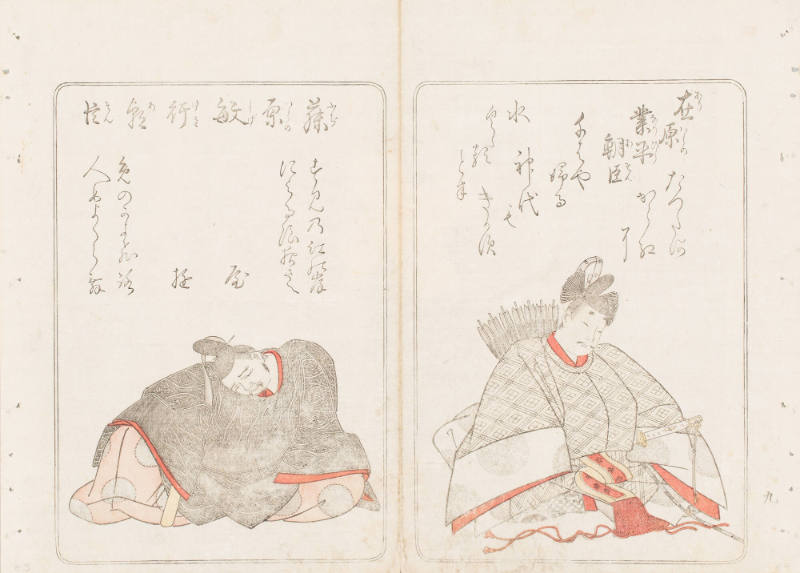 在原
業平
朝臣
ちはや
婦る
神代も
きかす
たつた河
から紅
に
水
くゝる
とは
藤原敏行朝臣
すみ乃江の岸
による浪よるさへ
屋
遊
免のかよひ路
人めよくらむ
九